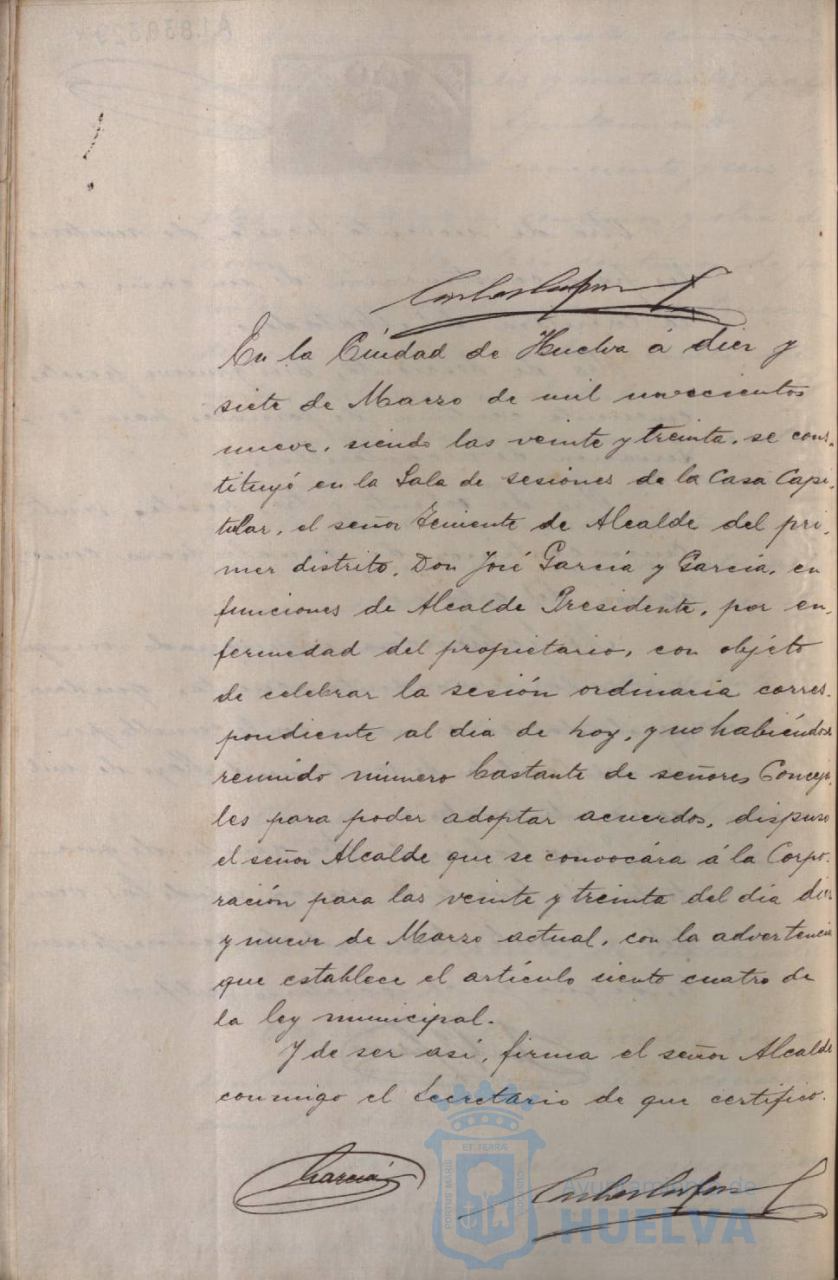 En la Ciudad de Huelva á diez y
siete de Marzo de mil novecientos
nueve, siendo las veinte y treinta, se cons-
tituyó en la Sala de sesiones de la Casa Capi-
tular, el señor Teniente de Alcalde del pri-
mer distrito, Don José García y García, en
funciones de Alcalde Presidente, por en-
fermedad del propietario, con objeto
de celebrar la sesión ordinaria corres-
pondiente al dia de hoy, y no habiéndose
reunido número bastante de señores Conceja-
les para poder adoptar acuerdos, dispuso
el señor Alcalde que se convocára á la Corpo-
ración para las veinte y treinta del dia diez
y nueve de Marzo actual, con la advertencia
que establece el artículo ciento cuatro de
la ley municipal.
Y de ser así, firma el señor Alcalde
conmigo el Secretario de que certifico.
García
Ayuntamiento de
HUELVA